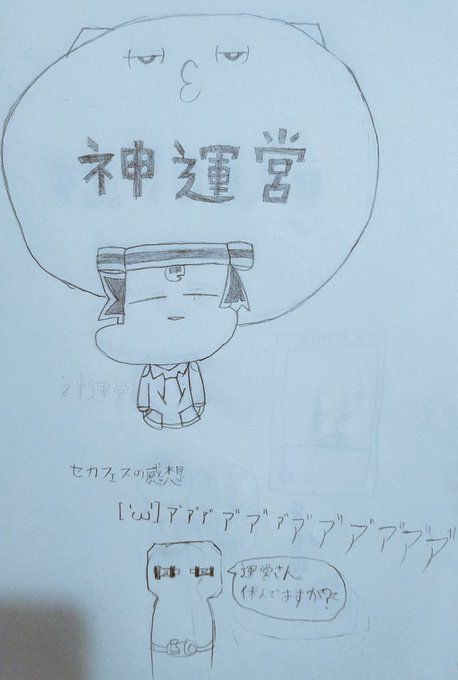 神運営
神運営
セカフェスの感想
['ω']ア゛ア゛ア゛ア゛ア゛ア゛ア゛ア゛ア゛ア゛ア゛ア゛
運営さん
休んでますか?と